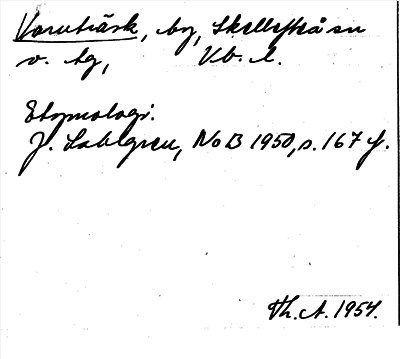 Varuträsk, by, Skellefteå sn
v. tg, Vb. l.
Etymologi.
J. Sahlgren, NoB 1950, s. 167 f.
Th. A. 1954.